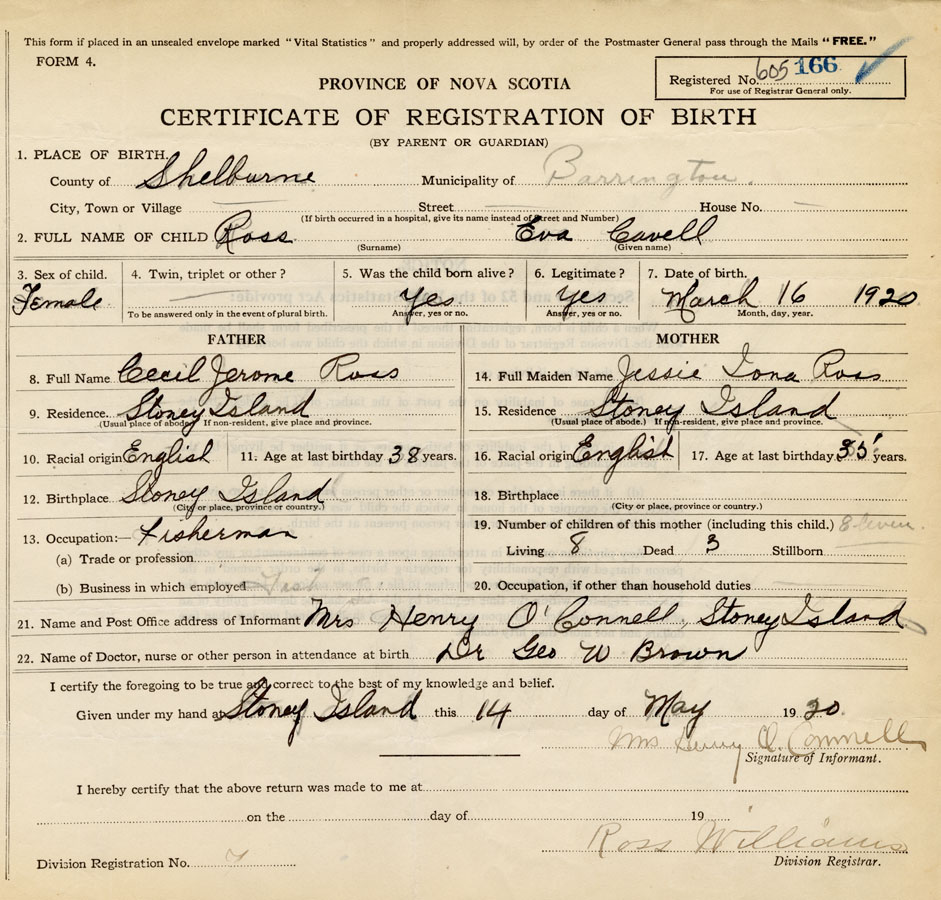 This form if placed in an unsealed envelope marked "Vital Statistics" and properly addressed will, by order of the Postmaster General pass through the Mails "FREE."
FORM 4.
Registered No. 605 166
For use of Registrar General only.
PROVINCE OF NOVA SCOTIA
CERTIFICATE OF REGISTRATION OF BIRTH
(BY PARENT OR GUARDIAN)
1. PLACE OF BIRTH.
County of Shelburne Municipality of Barrington
City, Town or Village Street House No.
(If birth occurred in a hospital, give its name instead of Street and Number)
2. FULL NAME OF CHILD Ross Eva Cavell
(Surname) (Given name)
3. Sex of child. 4. Twin, triplet or other? 5. Was the child born alive? 6. Legitimate? 7. Date of birth.
Female Yes Yes March 16 1920
To be answered only in the event of plural birth. Answer, yes or no. Answer, yes or no. Month, day, year.
FATHER
8. Full Name Cecil Jerome Ross
9. Residence Stoney Island
(Usual place of abode) If non-resident, give place and province.
10. Racial origin English 11. Age at last birthday 38 years.
12. Birthplace Stoney Island
(City or place, province or country.)
13. Occupation:— Fisherman
(a) Trade or profession
(b) Business in which employed
MOTHER
14. Full Maiden Name Jessie Iona Ross
15. Residence Stoney Island
(Usual place of abode.) If non-resident, give place and province.
16. Racial origin English 17. Age at last birthday 35 years.
18. Birthplace
(City or place, province or country.)
19. Number of children of this mother (including this child.) Eleven
Living 8 Dead 3 Stillborn
20. Occupation, if other than household duties
21. Name and Post Office address of Informant Mrs Henry O'Connell, Stoney Island
22. Name of Doctor, nurse or other person in attendance at birth Dr Geo W Brown
I certify the foregoing to be true and correct to the best of my knowledge and belief.
Given under my hand at Stoney Island this 14 day of May 1920
Mrs Henry O. Connell
Signature of Informant.
I hereby certify that the above return was made to me at
on the day of 19
Ross Williams
Division Registrar.
Division Registration No. 7